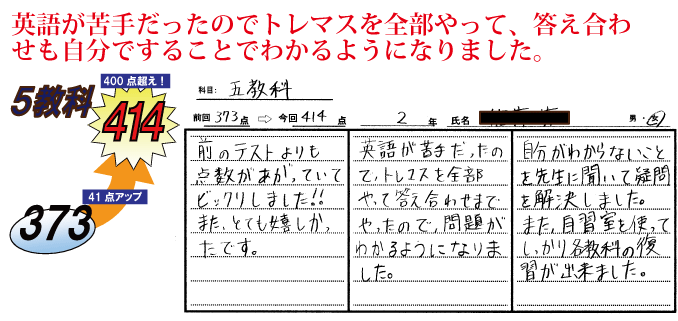 英語が苦手だったのでトレマスを全部やって、答え合わ
せも自分ですることでわかるようになりました。
400 点超え！
5教科
414
41 点アップ
373
科目: 五教科
前回 373 点 ⇨ 今回 414 点 2 年 氏名 男・女
前のテストよりも
点数があがっていて
ビックリしました!!
また、とても嬉しかっ
たです。
英語が苦手だったの
で、トレマスを全部
やって答え合わせまで
やったので、問題が
わかるようになりま
した。
自分がわからないこと
を先生に聞いて疑問
を解決しました。
また、自習室を使って
しっかり各教科の復
習が出来ました。